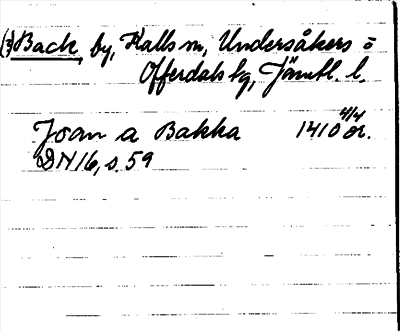 (3) Back, by, Kalls sn, Undersåkers o
Offerdals tg, Jämtl. l.
Joan a Bakka 1410 4/4 or.
DN 16, s. 59